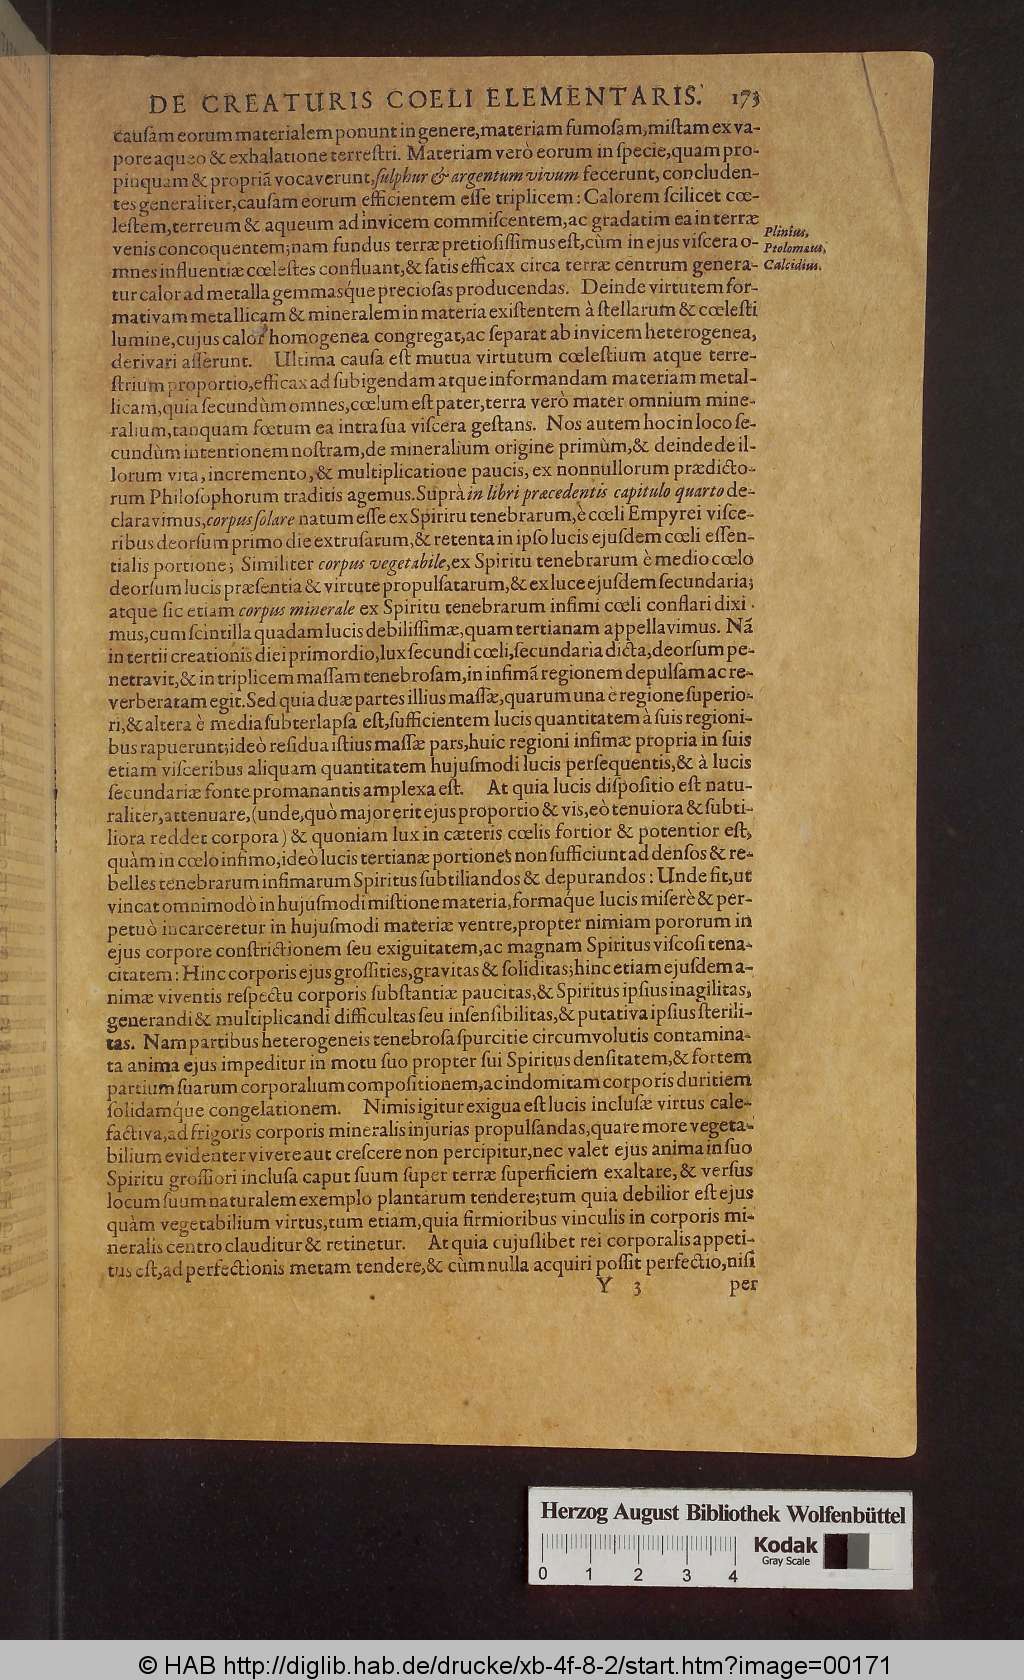 DE CREATURIS COELI ELEMENTARIS. 173
causam eorum materialem ponunt in genere, materiam fumosam, mistam ex va-
pore aqueo & exhalatione terrestri. Materiam verò eorum in specie, quam pro-
pinquam & propriã vocaverunt, sulphur & argentum vivum fecerunt, concluden-
tes generaliter, causam eorum efficientem esse triplicem: Calorem scilicet cœ-
lestem, terreum & aqueum ad invicem commiscentem, ac gradatim ea in terræ
venis concoquentem; nam fundus terræ pretiosissimus est, cùm in ejus viscera o-
mnes influentiæ cœlestes confluant, & satis efficax circa terræ centrum genera-
tur calor ad metalla gemmasq́ue preciosas producendas. Deinde virtutem for-
mativam metallicam & mineralem in materia existentem à stellarum & cœlesti
lumine, cujus calor homogenea congregat, ac separat ab invicem heterogenea,
derivari asserunt. Ultima causa est mutua virtutum cœlestium atque terre-
strium proportio, efficax ad subigendam atque informandam materiam metal-
licam, quia secundùm omnes, cœlum est pater, terra verò mater omnium mine-
ralium, tanquam fœtum ea intra sua viscera gestans. Nos autem hoc in loco se-
cundùm intentionem nostram, de mineralium origine primùm, & deinde de il-
lorum vita, incremento, & multiplicatione paucis, ex nonnullorum prædicto-
rum Philosophorum traditis agemus. Suprà in libri præcedentis capitulo quarto de-
claravimus, corpus solare natum esse ex Spiriru tenebrarum, è cœli Empyrei visce-
ribus deorsum primo die extrusarum, & retenta in ipso lucis ejusdem cœli essen-
tialis portione; Similiter corpus vegetabile, ex Spiritu tenebrarum è medio cœlo
deorsum lucis præsentia & virtute propulsatarum, & ex luce ejusdem secundaria;
atque sic etiam corpus minerale ex Spiritu tenebrarum infimi cœli conflari dixi-
mus, cum scintilla quadam lucis debilissimæ, quam tertianam appellavimus. Nã
in tertii creationis diei primordio, lux secundi cœli, secundaria dicta, deorsum pe-
netravit, & in triplicem massam tenebrosam, in infimã regionem depulsam ac re-
verberatam egit. Sed quia duæ partes illius massæ, quarum una è regione superio-
ri, & altera è media subterlapsa est, sufficientem lucis quantitatem à suis regioni-
bus rapuerunt; ideò residua istius massæ pars, huic regioni infimæ propria in suis
etiam visceribus aliquam quantitatem hujusmodi lucis persequentis, & à lucis
secundariæ fonte promanantis amplexa est. At quia lucis dispositio est natu-
raliter, attenuare, (unde, quò major erit ejus proportio & vis, eò tenuiora & subti-
liora reddet corpora) & quoniam lux in cæteris cœlis fortior & potentior est,
quàm in cœlo infimo, ideò lucis tertianæ portiones non sufficiunt ad densos & re-
belles tenebrarum infimarum Spiritus subtiliandos & depurandos: Unde fit, ut
vincat omnimodò in hujusmodi mistione materia, formaq́ue lucis miserè & per-
petuò incarceretur in hujusmodi materiæ ventre, propter nimiam pororum in
ejus corpore constrictionem seu exiguitatem, ac magnam Spiritus viscosi tena-
citatem: Hinc corporis ejus grossities, gravitas & soliditas; hinc etiam ejusdem a-
nimæ viventis respectu corporis substantiæ paucitas, & Spiritus ipsius inagilitas,
generandi & multiplicandi difficultas seu insensibilitas, & putativa ipsius sterili-
tas. Nam partibus heterogeneis tenebrosa spurcitie circumvolutis contamina-
ta anima ejus impeditur in motu suo propter sui Spiritus densitatem, & fortem
partium suarum corporalium compositionem, ac indomitam corporis duritiem
solidamq́ue congelationem. Nimis igitur exigua est lucis inclusæ virtus cale-
factiva, ad frigoris corporis mineralis injurias propulsandas, quare more vegeta-
bilium evidenter vivere aut crescere non percipitur, nec valet ejus anima in suo
Spiritu grossiori inclusa caput suum super terræ superficiem exaltare, & versus
locum suum naturalem exemplo plantarum tendere; tum quia debilior est ejus
quàm vegetabilium virtus, tum etiam, quia firmioribus vinculis in corporis mi-
neralis centro clauditur & retinetur. At quia cujuslibet rei corporalis appeti-
tus est, ad perfectionis metam tendere, & cùm nulla acquiri possit perfectio, nisi
Y 3 per
Plinius,
Ptolomæus,
Calcidius.
Herzog August Bibliothek Wolfenbüttel
Kodak
Gray Scale
0 1 2 3 4
© HAB http://diglib.hab.de/drucke/xb-4f-8-2/start.htm?image=00171